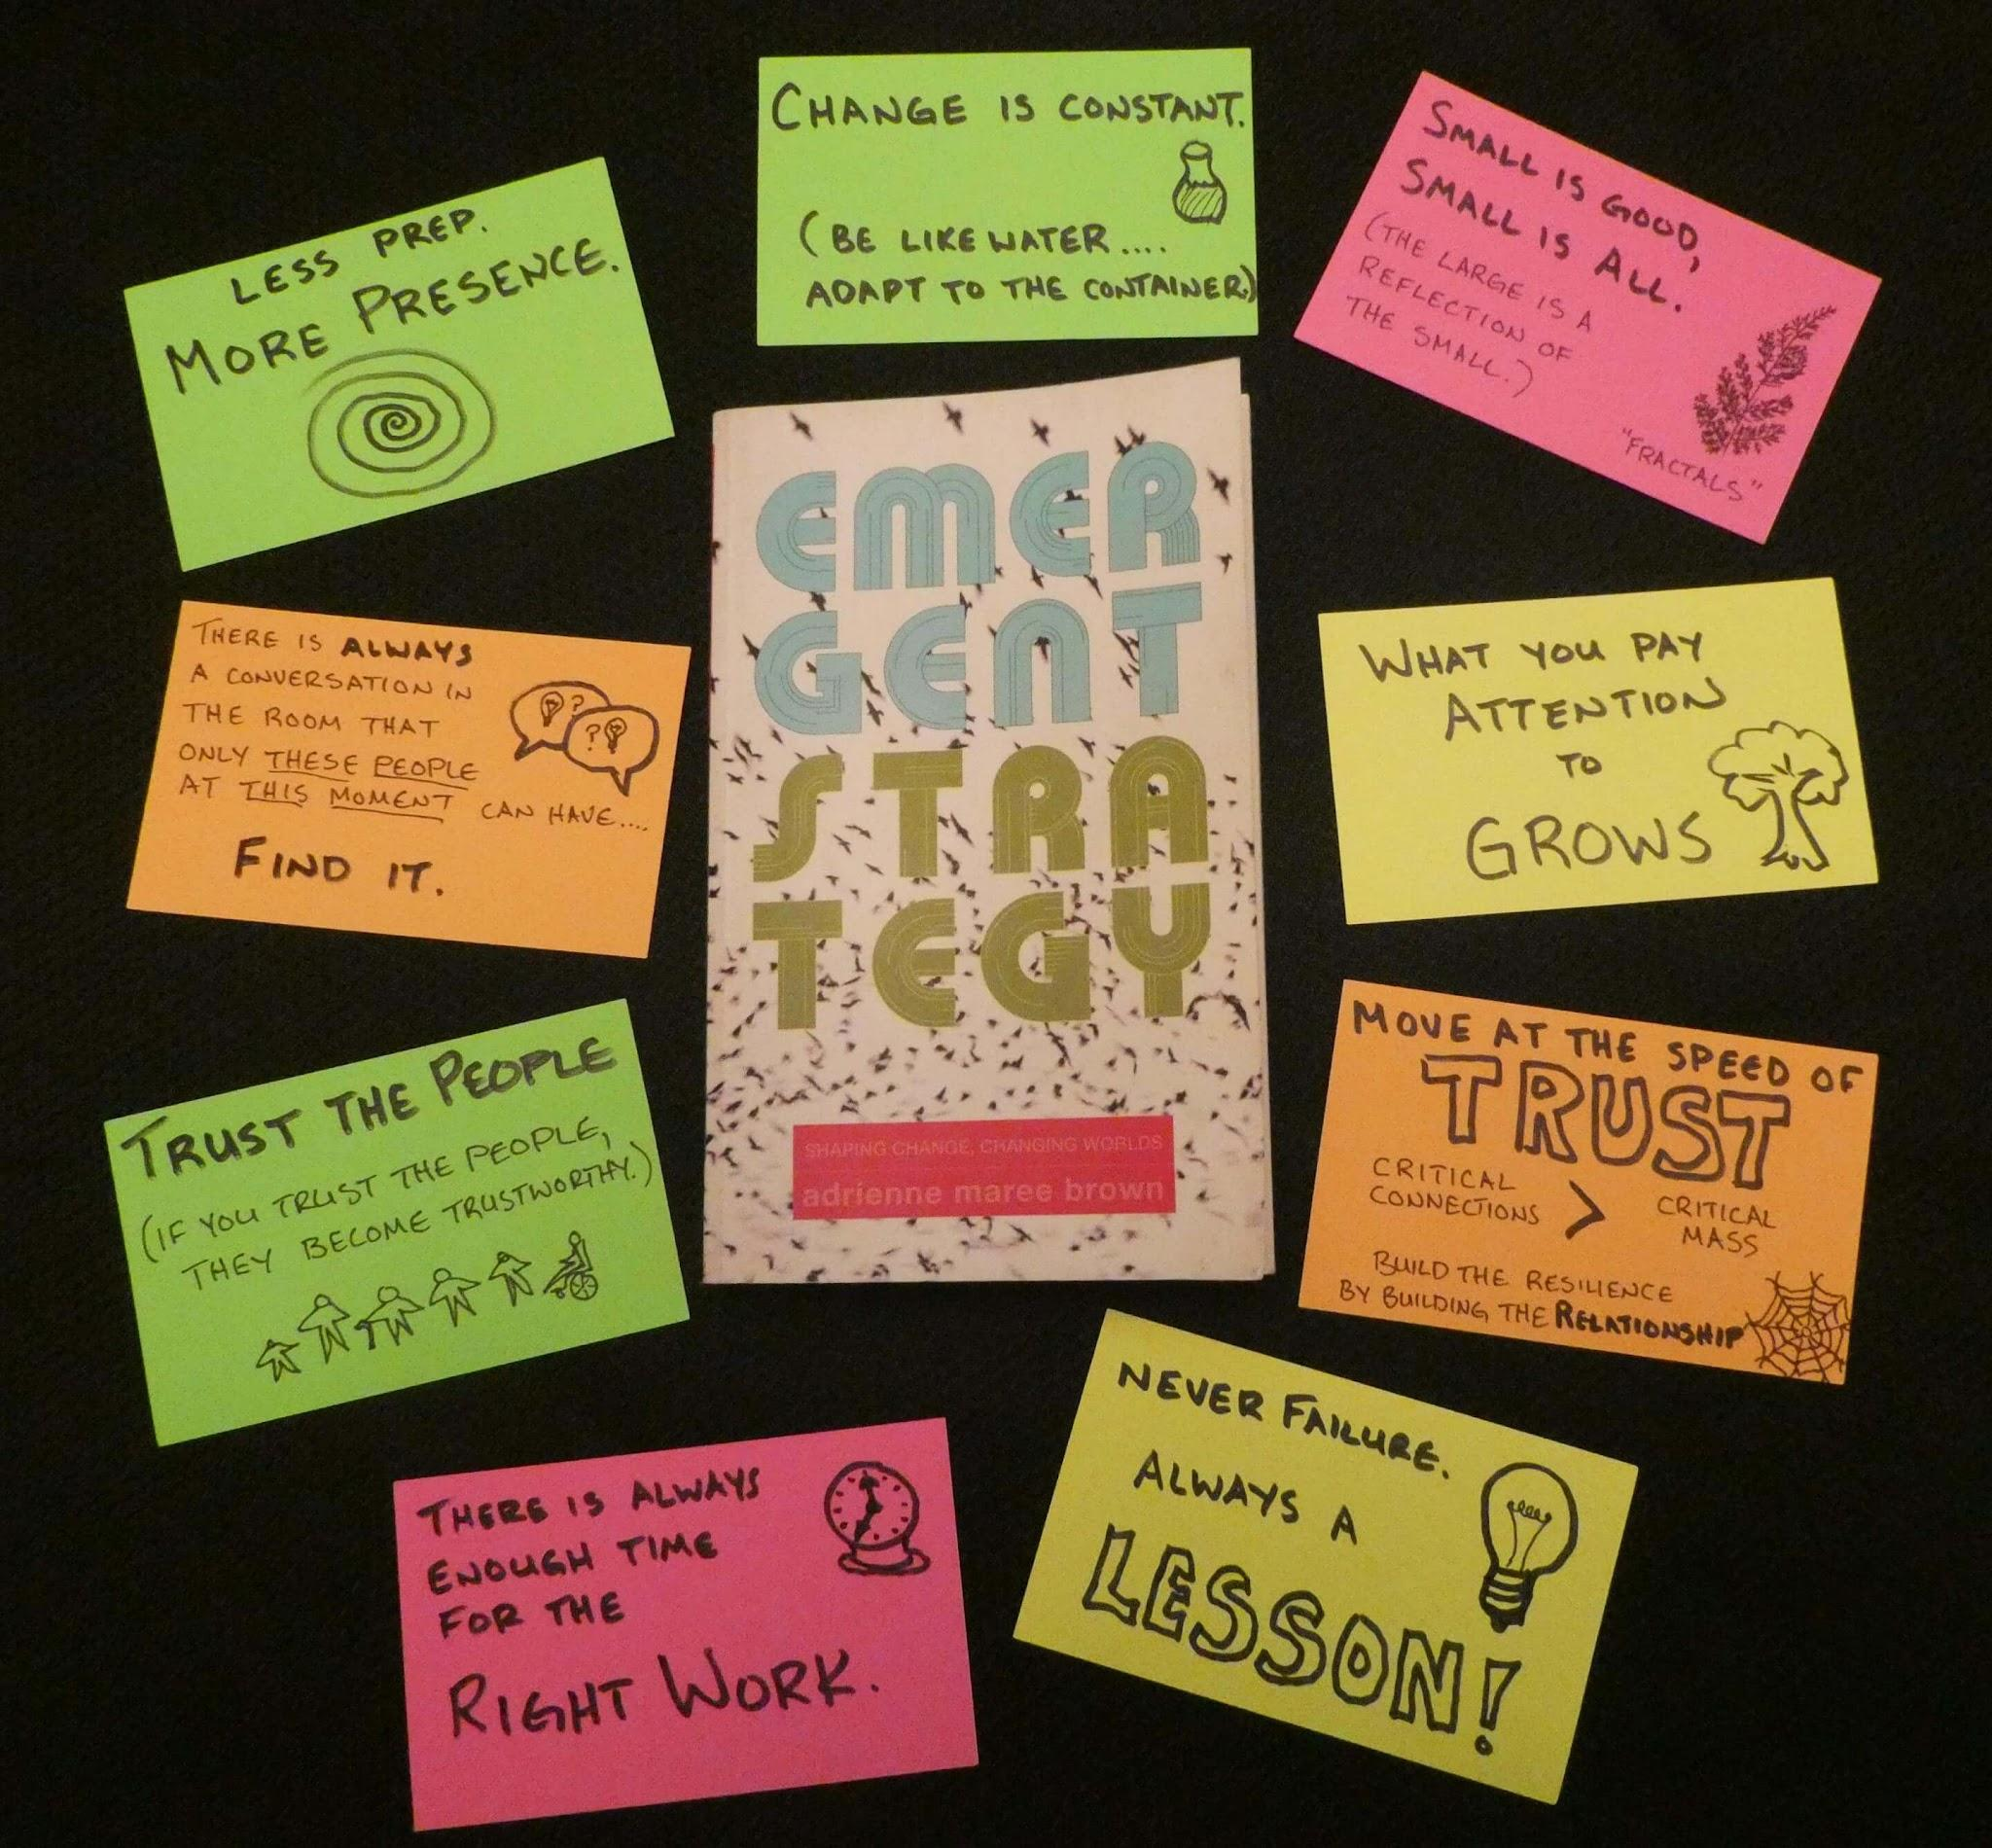 CHANGE IS CONSTANT.
(BE LIKE WATER....
ADAPT TO THE CONTAINER.)
SMALL IS GOOD,
SMALL IS ALL.
(THE LARGE IS A
REFLECTION OF
THE SMALL.)
"FRACTALS"
LESS PREP.
MORE PRESENCE.
EMER
GENT
STRA
TEGY
SHAPING CHANGE, CHANGING WORLDS
adrienne maree brown
THERE IS ALWAYS
A CONVERSATION IN
THE ROOM THAT
ONLY THESE PEOPLE
AT THIS MOMENT CAN HAVE....
FIND IT.
? ?
WHAT YOU PAY
ATTENTION
TO
GROWS
TRUST THE PEOPLE
(IF YOU TRUST THE PEOPLE,
THEY BECOME TRUSTWORTHY.)
MOVE AT THE SPEED OF
TRUST
CRITICAL
CONNECTIONS > CRITICAL
MASS
BUILD THE RESILIENCE
BY BUILDING THE RELATIONSHIP
THERE IS ALWAYS
ENOUGH TIME
FOR THE
RIGHT WORK.
NEVER FAILURE.
ALWAYS A
LESSON!